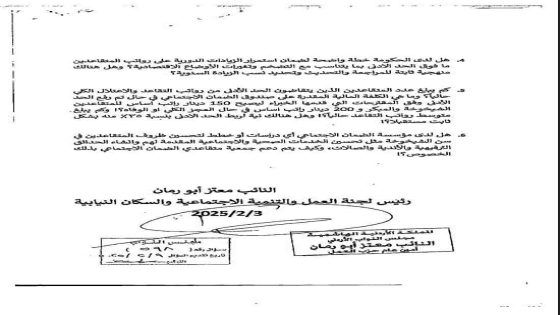 ٤. هل لدى الحكومة خطة واضحة لضمان استمرار الزيادات الدورية على رواتب المتقاعدين
ما فوق الحد الأدنى بما يتناسب مع التضخم وتغيرات الأوضاع الاقتصادية؟ وهل هنالك
منهجية ثابتة للمراجعة والتحديث وتحديد نسب الزيادة السنوية؟
٥. كم يبلغ عدد المتقاعدين الذين يتقاضون الحد الأدنى من رواتب التقاعد والاعتلال الكلي
حالياً؟ وما هي الكلفة المالية المقدرة على صندوق الضمان الاجتماعي في حال تم رفع الحد
الأدنى وفق المقترحات التي قدمها الخبراء ليصبح 150 دينار راتب أساس للمتقاعدين
الشيخوخة والمبكر و 200 دينار راتب أساس في حال العجز الكلي أو الوفاة؟! وكم يبلغ
متوسط رواتب التقاعد حالياً؟! وهل هنالك نية لربط الحد الأدنى بنسبة ٢٥٪ منه بشكل
ثابت مستقبلاً؟!
٦. هل لدى مؤسسة الضمان الاجتماعي أي دراسات أو خطط لتحسين ظروف المتقاعدين في
سن الشيخوخة مثل تحسين الخدمات الصحية والاجتماعية المقدمة لهم وإنشاء الحدائق
الترفيهية والأندية والصالات، وكيف يتم دعم جمعية متقاعدي الضمان الاجتماعي بذلك
الخصوص؟!
النائب معتز أبو رمان
رئيس لجنة العمل والتنمية الاجتماعية والسكان النيابية
2025/2/3
المملكة الأردنية الهاشمية
مجلس النواب الأردني
النائب معتز أبو رمان
أمين عام حزب العمل
مجلس النواب